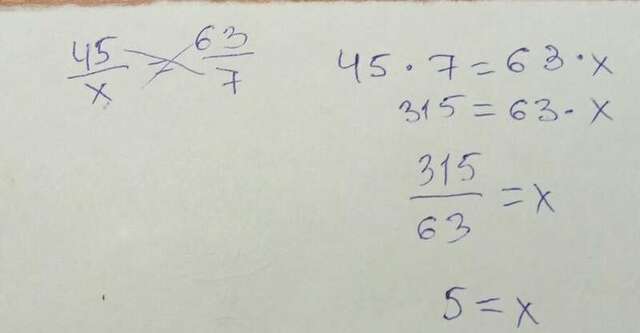 45/x = 63/7
45 · 7 = 63 · x
315 = 63 · x
315/63 = x
5 = x